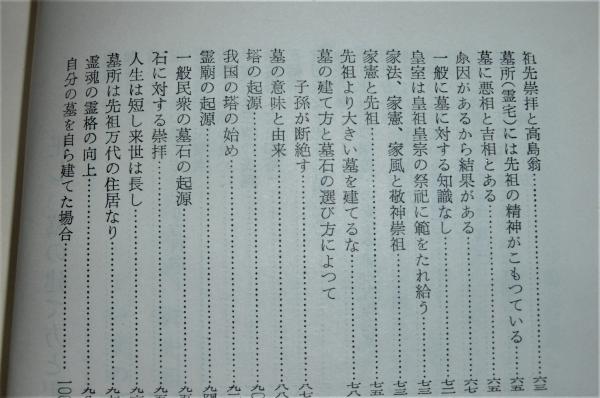 祖先崇拝と高島翁……………………六三
墓所(霊宅)には先祖の精神がこもつている……六五
墓に悪相と吉相とある……………………六五
原因があるから結果がある……………………六七
一般に墓に対する知識なし……………………七一
皇室は皇祖皇宗の祭祀に範をたれ給う……………七三
家法、家憲、家風と敬神崇祖……………………七三
家憲と先祖……………………七五
先祖より大きい墓を建てるな……………………七八
墓の建て方と墓石の選び方によつて
子孫が断絶す……………………八七
墓の意味と由来……………………八八
塔の起源……………………九〇
我国の塔の始め……………………九一
霊廟の起源……………………九四
一般民衆の墓石の起源……………………九五
石に対する崇拝……………………九五
人生は短し来世は長し……………………九六
墓所は先祖万代の住居なり……………………九七
霊魂の霊格の向上……………………九九
自分の墓を自ら建てた場合……………………一〇